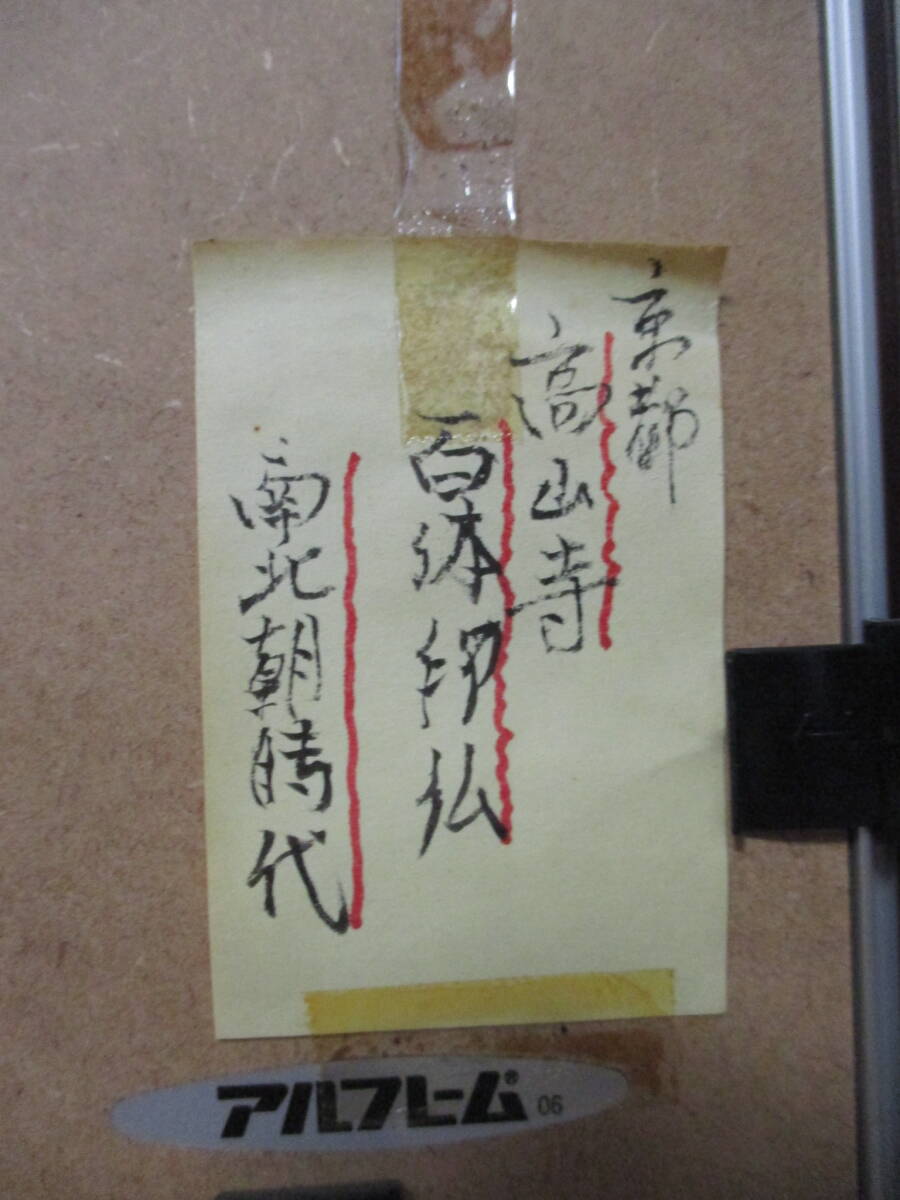 京都
高山寺
百体印仏
南北朝時代
アルフレーム® 06